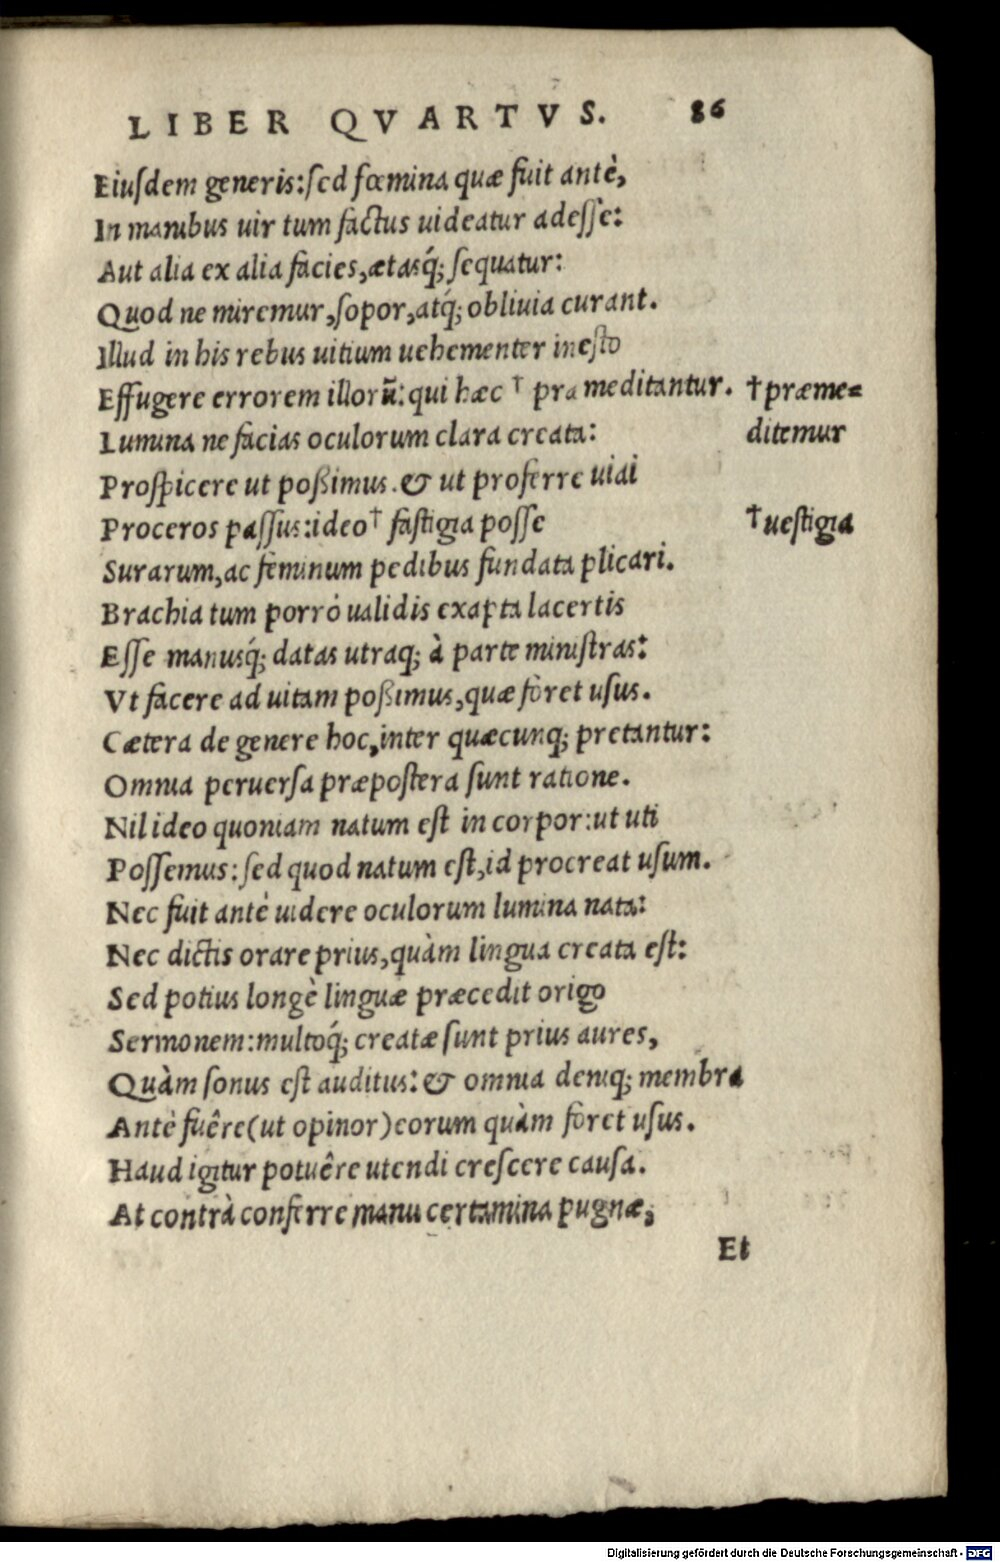 LIBER QVARTVS. 86
Eiuſdem generis:ſed fœmina quæ fuit antè,
In manibus uir tum factus uideatur adeſſe:
Aut alia ex alia facies,ætasq́; ſequatur:
Quod ne miremur,ſopor,atq́; obliuia curant.
Illud in his rebus uitium uehementer ineſto
Effugere errorem illorũ: qui hæc † præmeditantur. † præme=
Lumina ne facias oculorum clara creata: ditemur
Proſpicere ut poßimus. & ut proferre uiai
Proceros paſſus:ideo † faſtigia poſſe † ueſtigia
Surarum,ac feminum pedibus fundata plicari.
Brachia tum porrò ualidis exapta lacertis
Eſſe manusq́; datas utraq; à parte miniſtras:
Vt facere ad uitam poßimus,quæ foret uſus.
Cætera de genere hoc,inter quæcunq; pretantur:
Omnia peruerſa præpoſtera ſunt ratione.
Nil ideo quoniam natum eſt in corpor:ut uti
Poſſemus:ſed quod natum eſt,id procreat uſum.
Nec fuit antè uidere oculorum lumina nata:
Nec dictis orare prius,quàm lingua creata eſt:
Sed potius longè linguæ præcedit origo
Sermonem:multoq́; creatæ ſunt prius aures,
Quàm ſonus eſt auditus: & omnia deniq; membra
Antè fuêre(ut opinor)eorum quàm foret uſus.
Haud igitur potuêre utendi creſcere cauſa.
At contrà conferre manu certamina pugnæ,
Et
Digitalisierung gefördert durch die Deutsche Forschungsgemeinschaft - DFG